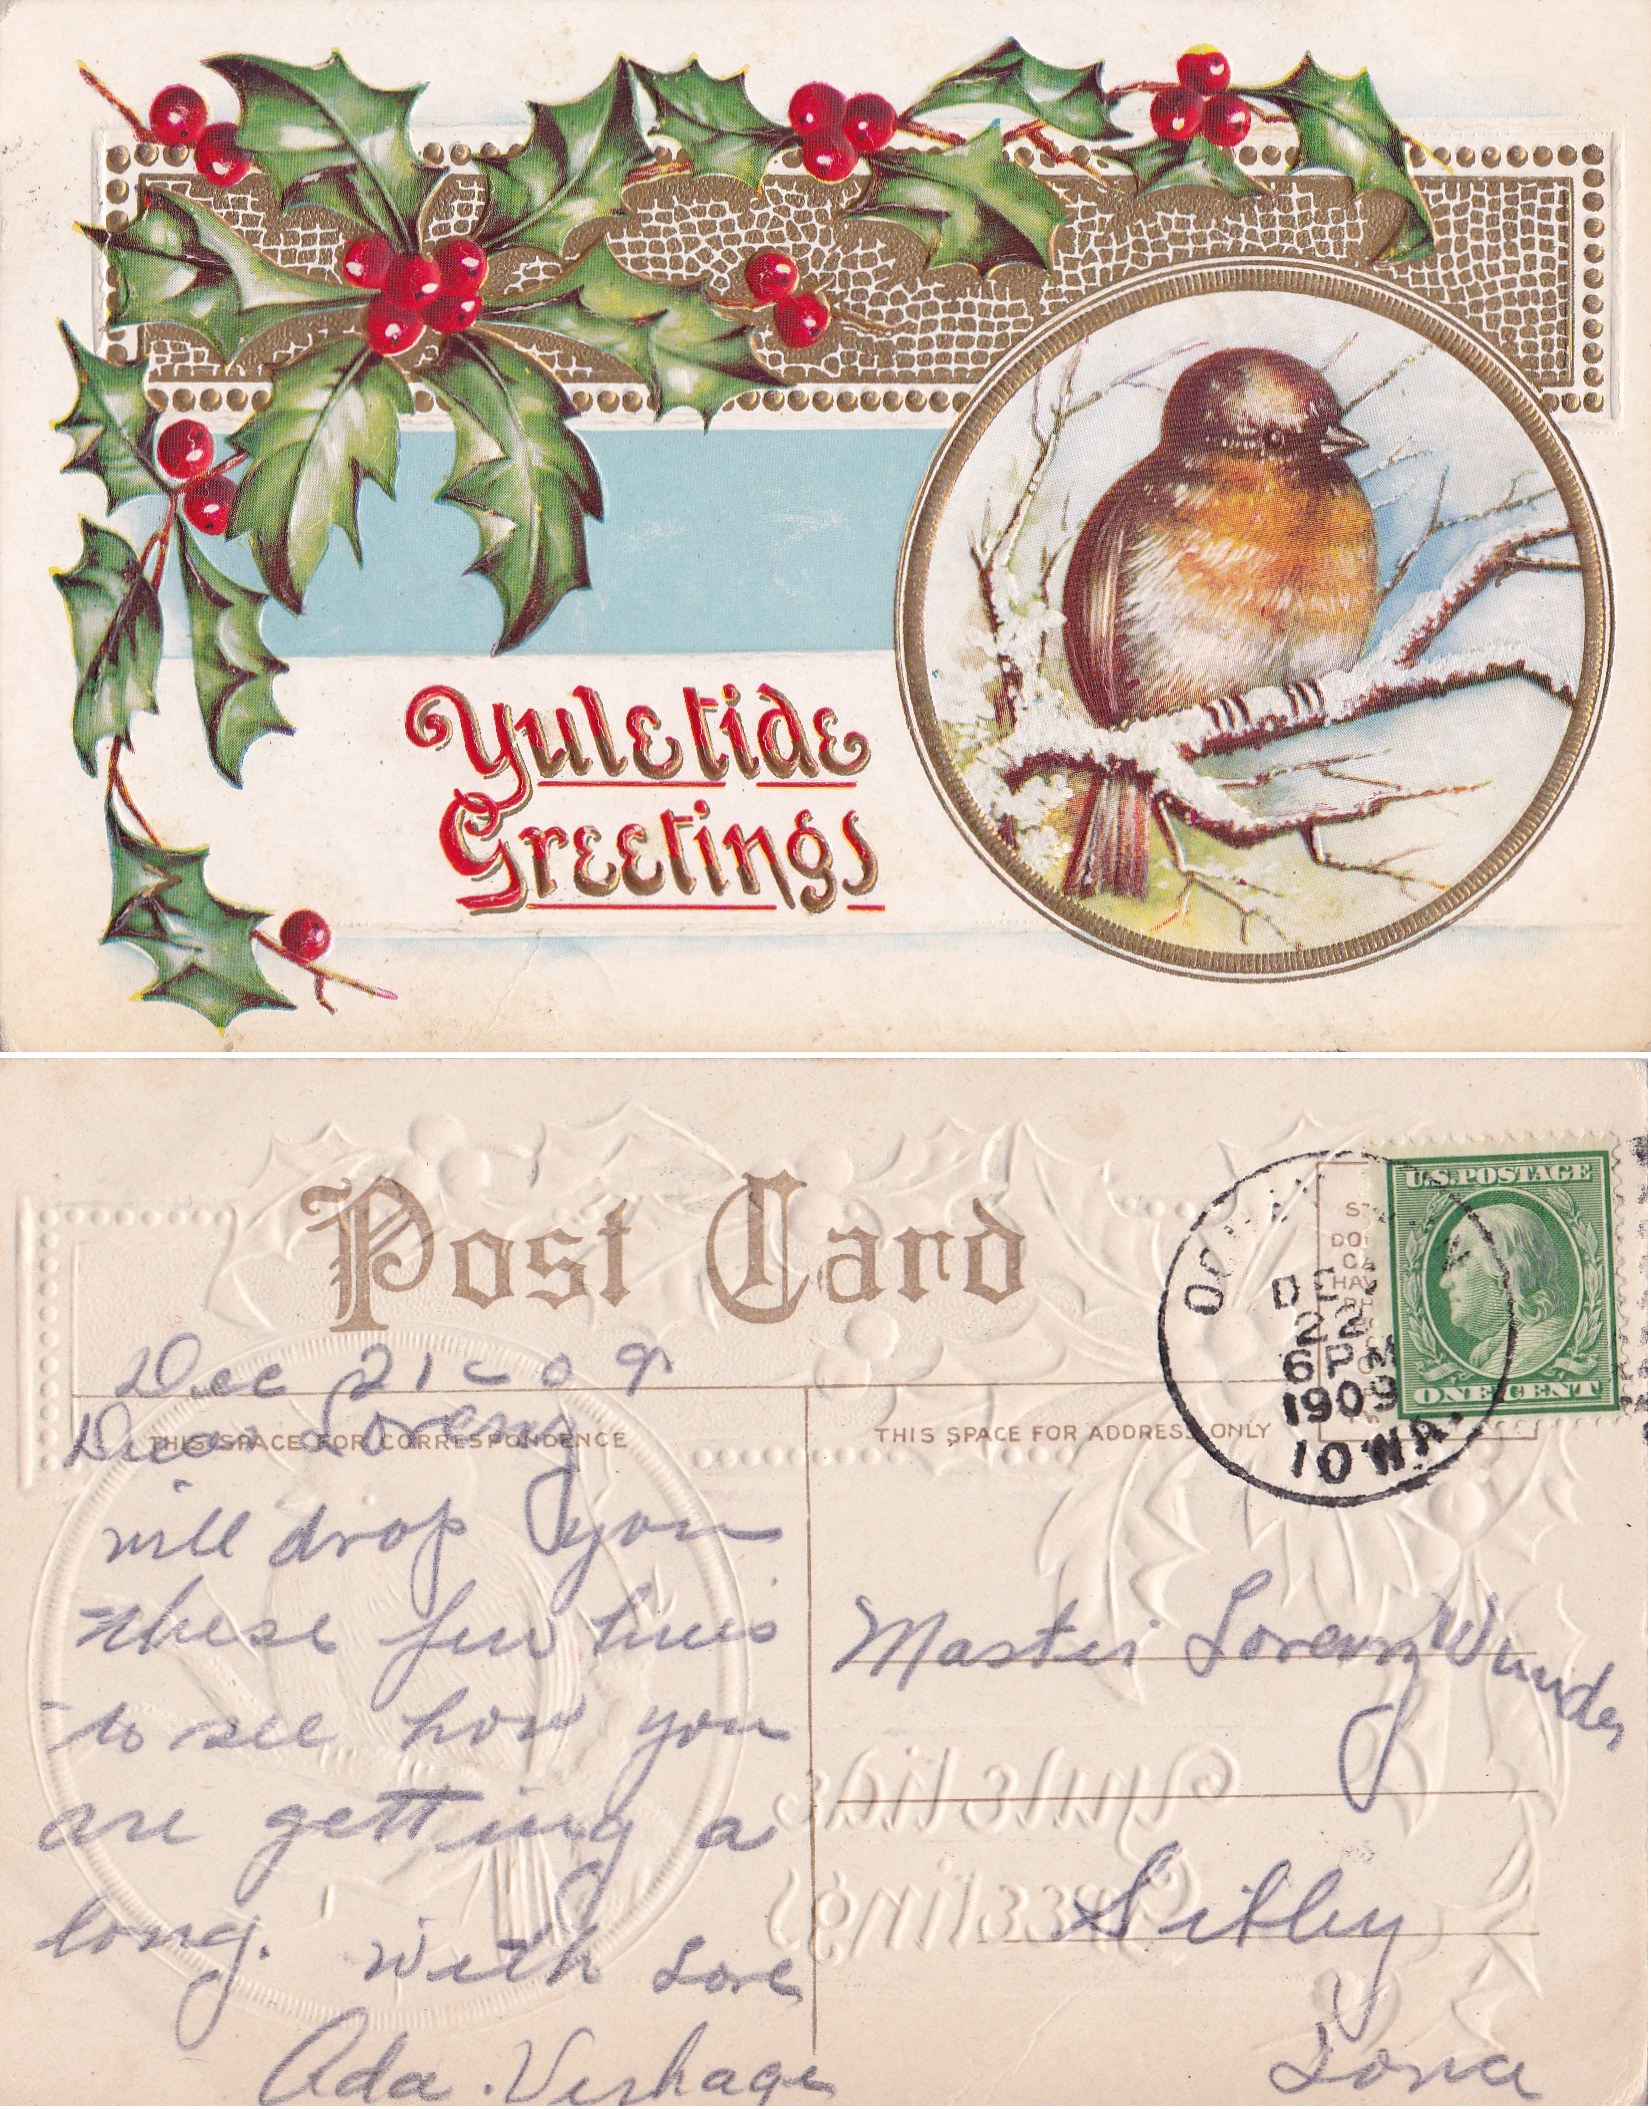 Yuletide
Greetings
Post Card
U.S. POSTAGE
ONE CENT
DEC
22
6 PM
1909
IOWA.
Dec 21 - 09
THIS SPACE FOR CORRESPONDENCE
THIS SPACE FOR ADDRESS ONLY
Dear Lorenz
will drop you
these few lines
to see how you
are getting a
long. With Love
Ada. Verhage
Master Lorenz Wunder
Sibley
Iowa